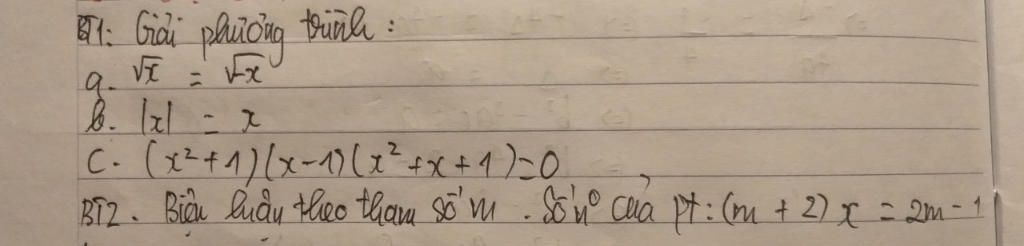 BT1: Giải phương trình:
a. √x = √-x
b. |x| = x
c. (x²+1)(x-1)(x²+x+1)=0
BT2. Biện luận theo tham số m. Số n° của pt: (m + 2) x = 2m - 1